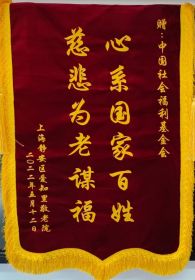 赠：中国社会福利基金会
心系国家百姓
慈悲为老谋福
上海静安区爱知里敬老院
二〇二二年五月十二日